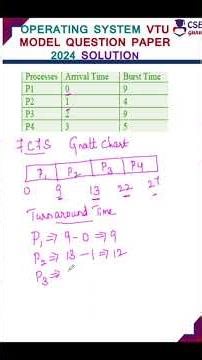 CSE
guru
OPERATING SYSTEM VTU
MODEL QUESTION PAPER
2024 SOLUTION
Processes Arrival Time Burst Time
P1 0 9
P2 1 4
P3 2 9
P4 3 5
FCFS Gratt Chart
P1 P2 P3 P4
0 9 13 22 27
Turnaround Time
P1 ⇒ 9 - 0 ⇒ 9
P2 ⇒ 13 - 1 ⇒ 12
P3 ⇒